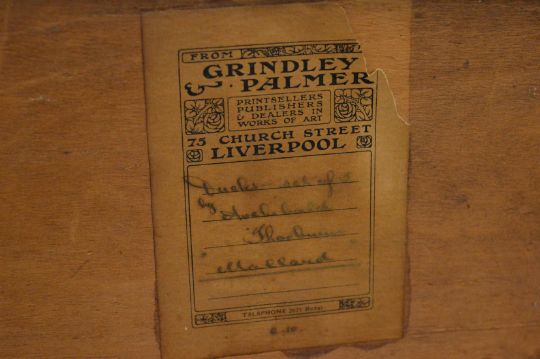 FROM
GRINDLEY
& PALMER
PRINTSELLERS
PUBLISHERS
& DEALERS IN
WORKS OF ART
75 CHURCH STREET
LIVERPOOL
Ducks set of
by Archibald
Thorburn
"Mallard"
TELEPHONE Royal